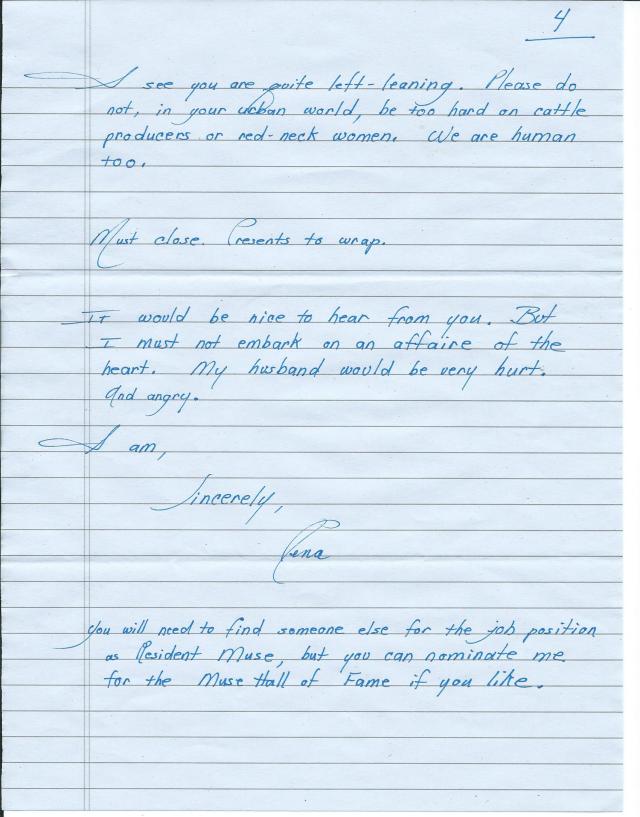 4
I see you are quite left-leaning. Please do
not, in your urban world, be too hard on cattle
producers or red-neck women. We are human
too.
Must close. Presents to wrap.
It would be nice to hear from you. But
I must not embark on an affaire of the
heart. My husband would be very hurt.
And angry.
I am,
Sincerely,
Rena
You will need to find someone else for the job position
as Resident Muse, but you can nominate me
for the Muse Hall of Fame if you like.